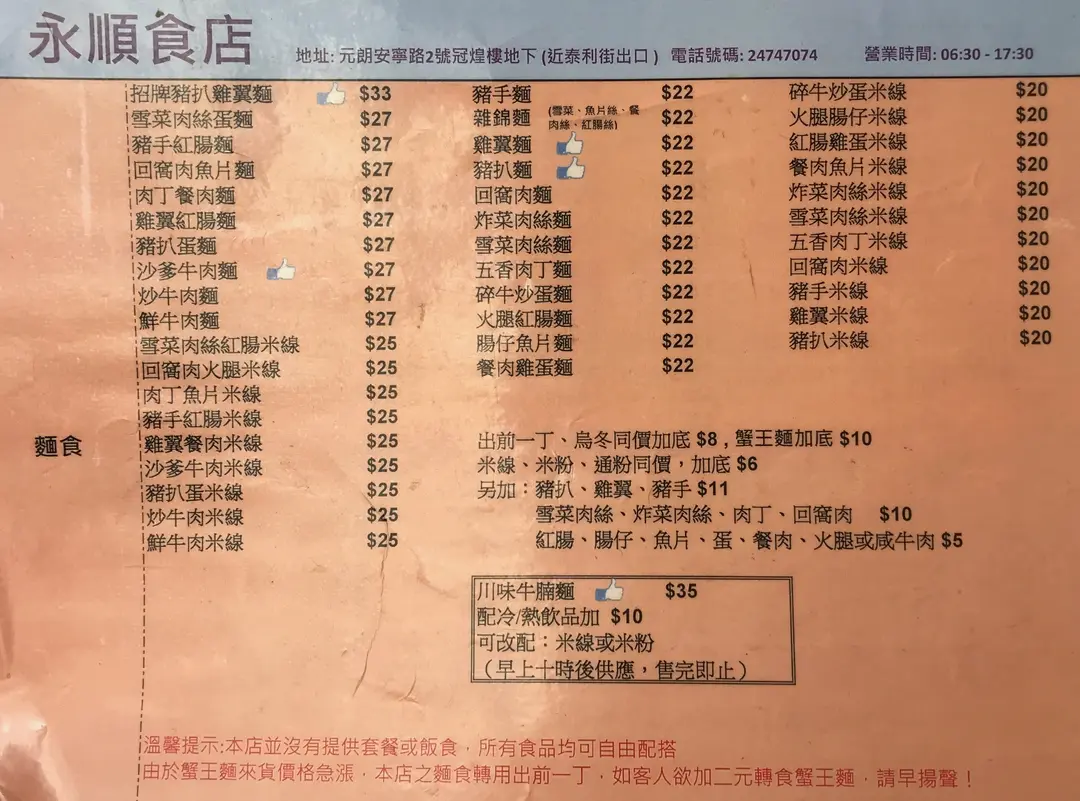 永順食店 地址: 元朗安寧路2號冠煌樓地下 (近泰利街出口 ) 電話號碼: 24747074 營業時間: 06:30 - 17:30
麵食
招牌豬扒雞翼麵 $33
雪菜肉絲蛋麵 $27
豬手紅腸麵 $27
回窩肉魚片麵 $27
肉丁餐肉麵 $27
雞翼紅腸麵 $27
豬扒蛋麵 $27
沙爹牛肉麵 $27
炒牛肉麵 $27
鮮牛肉麵 $27
雪菜肉絲紅腸米線 $25
回窩肉火腿米線 $25
肉丁魚片米線 $25
豬手紅腸米線 $25
雞翼餐肉米線 $25
沙爹牛肉米線 $25
豬扒蛋米線 $25
炒牛肉米線 $25
鮮牛肉米線 $25
豬手麵 $22
雜錦麵 (雪菜、魚片絲、餐肉絲、紅腸絲) $22
雞翼麵 $22
豬扒麵 $22
回窩肉麵 $22
炸菜肉絲麵 $22
雪菜肉絲麵 $22
五香肉丁麵 $22
碎牛炒蛋麵 $22
火腿紅腸麵 $22
腸仔魚片麵 $22
餐肉雞蛋麵 $22
碎牛炒蛋米線 $20
火腿腸仔米線 $20
紅腸雞蛋米線 $20
餐肉魚片米線 $20
炸菜肉絲米線 $20
雪菜肉絲米線 $20
五香肉丁米線 $20
回窩肉米線 $20
豬手米線 $20
雞翼米線 $20
豬扒米線 $20
出前一丁、烏冬同價加底 $8 , 蟹王麵加底 $10
米線、米粉、通粉同價，加底 $6
另加：豬扒、雞翼、豬手 $11
雪菜肉絲、炸菜肉絲、肉丁、回窩肉 $10
紅腸、腸仔、魚片、蛋、餐肉、火腿或咸牛肉 $5
川味牛腩麵 $35
配冷/熱飲品加 $10
可改配：米線或米粉
（早上十時後供應，售完即止）
溫馨提示:本店並沒有提供套餐或飯食，所有食品均可自由配搭
由於蟹王麵來貨價格急漲，本店之麵食轉用出前一丁，如客人欲加二元轉食蟹王麵，請早揚聲！